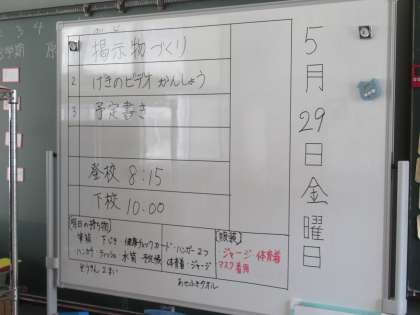 5月29日金曜日
掲示物づくり
2 げきのビデオかんしょう
3 予定書き
登校 8:15
下校 10:00
【明日の持ち物】
筆箱 下じき・健康チェックカード・ハンガー2つ
ハンカチ ティッシュ 水筒 予定帳 体育着・ジャージ
ぞうきん2まい
あせふきタオル
【服装】
ジャージ・体育着
マスク着用